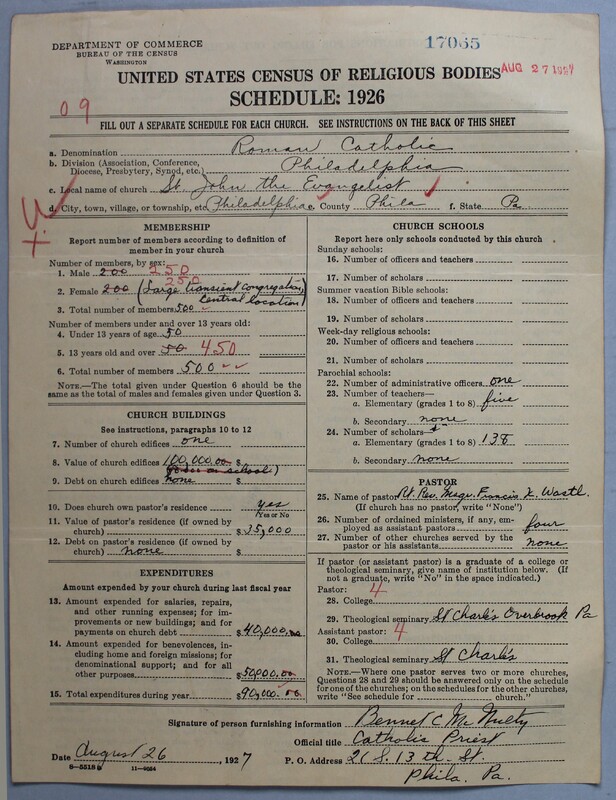 DEPARTMENT OF COMMERCE
BUREAU OF THE CENSUS
WASHINGTON
17065
UNITED STATES CENSUS OF RELIGIOUS BODIES
AUG 27 1927
SCHEDULE: 1926
09
FILL OUT A SEPARATE SCHEDULE FOR EACH CHURCH. SEE INSTRUCTIONS ON THE BACK OF THIS SHEET
a. Denomination Roman Catholic
b. Division (Association, Conference, Diocese, Presbytery, Synod, etc.) Philadelphia
c. Local name of church St. John the Evangelist
d. City, town, village, or township, etc. Philadelphia e. County Phila f. State Pa
MEMBERSHIP
Report number of members according to definition of
member in your church
Number of members, by sex:
1. Male 200 250
2. Female 200 250 (Large transient congregation, Central location)
3. Total number of members 500
Number of members under and over 13 years old:
4. Under 13 years of age 50
5. 13 years old and over 50 450
6. Total number of members 500
NOTE.—The total given under Question 6 should be
the same as the total of males and females given under Question 3.
CHURCH BUILDINGS
See instructions, paragraphs 10 to 12
7. Number of church edifices one
8. Value of church edifices 100,000.00 $
9. Debt on church edifices none $
10. Does church own pastor's residence yes
Yes or No
11. Value of pastor's residence (if owned by
church) $35,000
12. Debt on pastor's residence (if owned by
church) none $
EXPENDITURES
Amount expended by your church during last fiscal year
13. Amount expended for salaries, repairs,
and other running expenses; for im-
provements or new buildings; and for
payments on church debt $40,000.00
14. Amount expended for benevolences, in-
cluding home and foreign missions; for
denominational support; and for all
other purposes $50,000.00
15. Total expenditures during year $90,000.00
CHURCH SCHOOLS
Report here only schools conducted by this church
Sunday schools:
16. Number of officers and teachers
17. Number of scholars
Summer vacation Bible schools:
18. Number of officers and teachers
19. Number of scholars
Week-day religious schools:
20. Number of officers and teachers
21. Number of scholars
Parochial schools:
22. Number of administrative officers one
23. Number of teachers—
a. Elementary (grades 1 to 8) five
b. Secondary none
24. Number of scholars—
a. Elementary (grades 1 to 8) 138
b. Secondary none
PASTOR
25. Name of pastor Rt. Rev. Msgr. Francis X. Wastl.
(If church has no pastor, write "None")
26. Number of ordained ministers, if any, em-
ployed as assistant pastors four
27. Number of other churches served by the
pastor or his assistants none
If pastor (or assistant pastor) is a graduate of a college or
theological seminary, give name of institution below. (If
not a graduate, write "No" in the space indicated.)
Pastor: 4
28. College
29. Theological seminary St Charles Overbrook Pa
Assistant pastor: 4
30. College
31. Theological seminary St Charles
NOTE.—Where one pastor serves two or more churches,
Questions 28 and 29 should be answered only on the schedule
for one of the churches; on the schedules for the other churches,
write "See schedule for church."
Signature of person furnishing information Bennet C McNulty
Official title Catholic Priest
Date August 26, 1927 P. O. Address 21 S. 13th St.
Phila. Pa.
11-9024